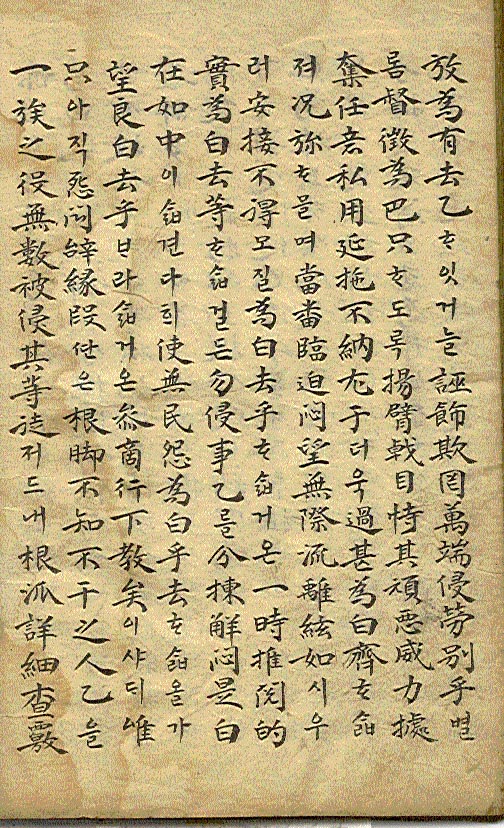 放為有去乙ᄒᆞ잇거늘誣飾欺罔萬端侵勞別乎별
음督徵為巴只ᄒᆞ도록揚臂戟目恃其頑惡威力據
奪任意私用延拖不納尤于더욱過甚為白齊ᄒᆞᄉᆞᆲ
져况旀ᄒᆞ믈며當番臨迫悶望無際流離絃如시우
러安接不得모질為白去乎ᄒᆞᄉᆞᆲ거온一時推閱的
實為白去等ᄒᆞᄉᆞᆲ걸든勿侵事乙를分揀解悶是白
在如中이ᄉᆞᆲ견다희使無民怨為白乎去ᄒᆞᄉᆞᆲ올가
望良白去乎ᄇᆞ라ᄉᆞᆲ거온參商行下敎矣이샤ᄃᆡ唯
只아직怨悶辭緣段ᄯᅡᆫ은根脚不知不干之人乙을
一族之役無數被侵其等徒저드내根派詳細査覈